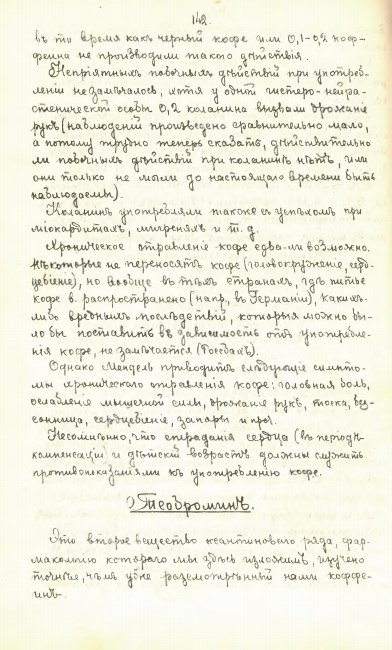 142.
въ то время какъ черный кофе или 0,1-0,2 коф-
феина не производили такого дѣйствія.
Непріятныхъ побочныхъ дѣйствій при употреб-
леніи не замѣчалось, хотя у одной истеро-нейра-
стенической особы 0,2 коланина вызвали дрожаніе
рукъ (наблюденій произведено сравнительно мало,
а потому трудно теперь сказать, дѣйствительно
ли побочныхъ дѣйствій при коланинѣ нѣтъ, или
они только не могли до настоящаго времени быть
наблюдаемы).
Коланинъ употребляли также съ успѣхомъ при
міокардитахъ, мигреняхъ и т. д.
Хроническое отравленіе кофе едва-ли возможно.
Нѣкоторые не переносятъ кофе (головокруженіе, серд-
цебіеніе), но вообще въ тѣхъ странахъ, гдѣ питье
кофе в. распространено (напр., въ Германіи), какихъ-
либо вредныхъ послѣдствій, которыя можно бы-
ло бы поставить въ зависимость отъ употребле-
нія кофе, не замѣчается.
Однако Мендель приводитъ слѣдующіе симпто-
мы хроническаго отравленія кофе: головная боль,
ослабленіе мышечной силы, дрожаніе рукъ, тоска, без-
сонница, сердцебіеніе, запоры и проч.
Несомнѣнно, что страданія сердца (въ періодѣ
компенсаціи) и дѣтскій возрастъ должны служить
противопоказаніями къ употребленію кофе.
Теоброминъ.
Это второе вещество ксантиноваго ряда, фар-
макологію котораго мы здѣсь изложимъ, изучено
точнѣе, чѣмъ уже разсмотрѣнный нами коффе-
инъ.